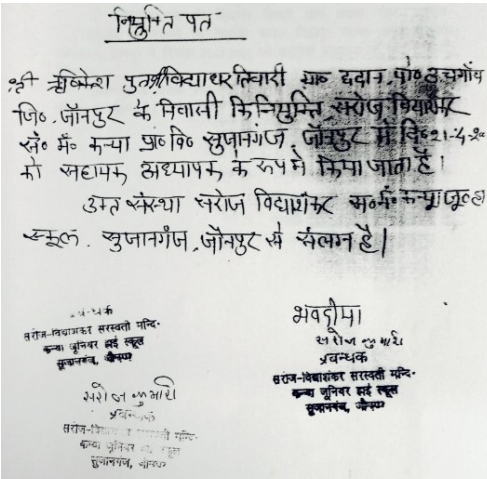 नियुक्ति पत्र
श्री ऋषिकेश पुत्र श्री विद्याधर तिवारी ग्रा० ददान, पो० ऊचगाँव
जि० जौनपुर के निवासी कि नियुक्ति सरोज विद्याशंकर
स० मं० कन्या प्रा० वि० सुजानगंज, जौनपुर में दि० 21-4-
को सहायक अध्यापक के रूप में किया जाता है।
उक्त संस्था सरोज विद्याशंकर स० मं० कन्या जू० हा०
स्कूल सुजानगंज, जौनपुर से संलग्न है।
भवदीया
सरोज कुमारी
प्रबन्धक
सरोज-विद्याशंकर सरस्वती मन्दि-
कन्या जूनियर हाई स्कूल
सुजानगंज, जौनपुर
सरोज-विद्याशंकर सरस्वती मन्दि-
कन्या जूनियर हाई स्कूल
सुजानगंज, जौनपुर
सरोज कुमारी
प्रबन्धक
सरोज-विद्याशंकर सरस्वती मन्दि-
कन्या जूनियर हाई स्कूल
सुजानगंज, जौनपुर